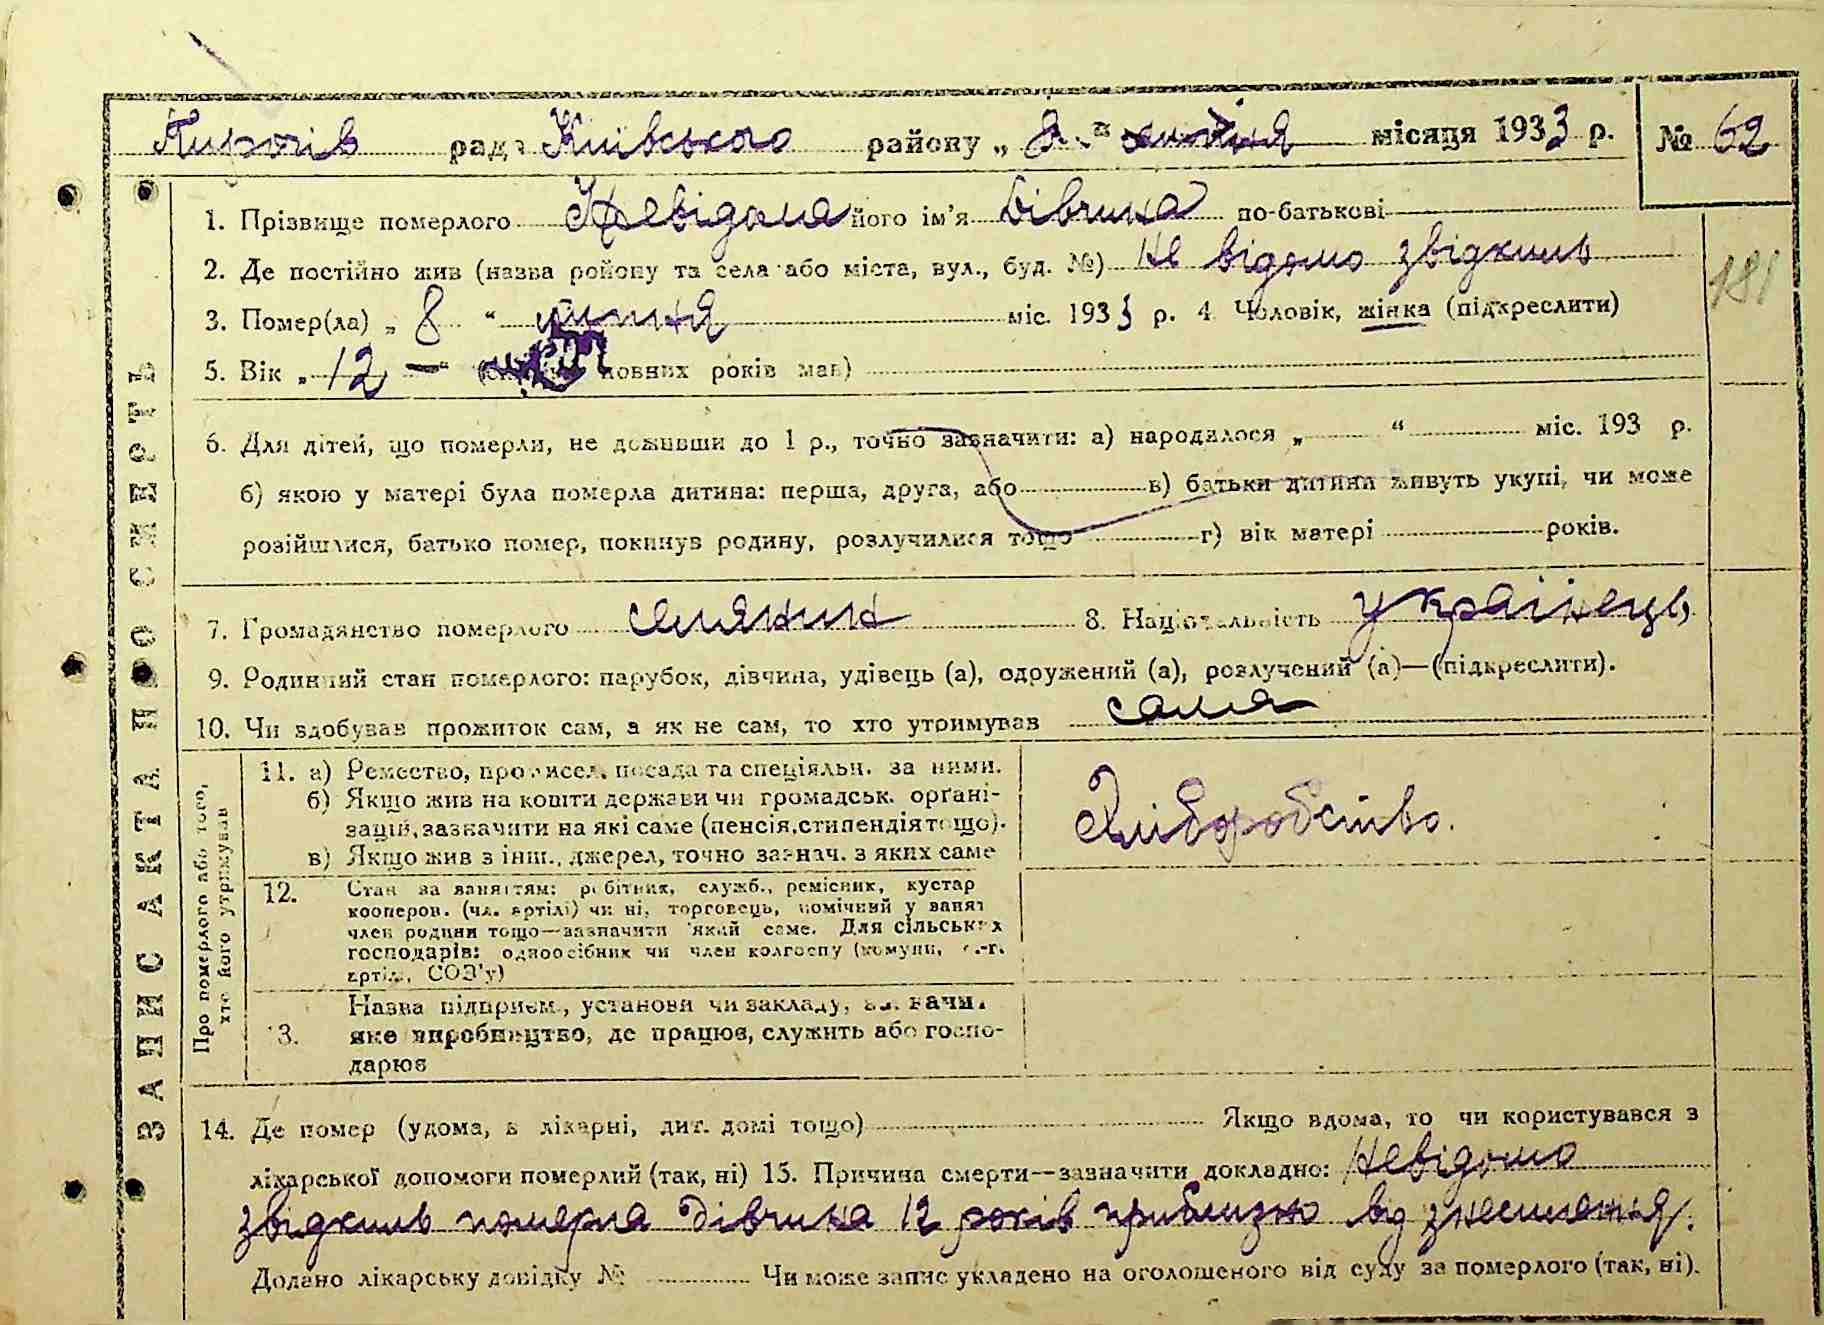 Пирогів рада Київського району „ 8 “ липня місяця 1933 р. № 62
1. Прізвище померлого Невідома його ім’я Дівчина по-батькові
2. Де постійно жив (назва району та села або міста, вул., буд. №) Не відомо звідкиль
181
3. Помер(ла) „ 8 “ липня міс. 1933 р. 4. Чоловік, жінка (підкреслити)
5. Вік „ 12 – “ повних років мав)
6. Для дітей, що померли, не доживши до 1 р., точно зазначити: а) народилося „ “ міс. 193 р.
б) якою у матері була померла дитина: перша, друга, або в) батьки дитини живуть укупі, чи може
розійшлися, батько помер, покинув родину, розлучилися тощо г) вік матері років.
7. Громадянство померлого селянин 8. Національність українець
9. Родинний стан померлого: парубок, дівчина, удівець (а), одружений (а), розлучений (а)—(підкреслити).
10. Чи здобував прожиток сам, а як не сам, то хто утримував сама
ЗАПИС АКТА ПРО СМЕРТЬ
Про померлого або того,
хто його утримував
11. а) Ремество, промисел, посада та спеціяльн. за ними.
б) Якщо жив на кошти держави чи громадськ. орґані-
зацій, зазначити на які саме (пенсія, стипендія тощо).
в) Якщо жив з інш., джерел, точно зазнач. з яких саме
Хліборобство.
12. Стан за заняттям: робітник, служб., ремісник, кустар
кооперов. (чл. артілі) чи ні, торговець, помічний у занят
член родини тощо—зазначити який саме. Для сільських
господарів: одноосібник чи член колгоспу (комуни, с.-г.
артіл., СОЗ’у)
13. Назва підприєм., установи чи закладу, зазначи.
яке виробництво, де працює, служить або госпо-
дарює
14. Де помер (удома, в лікарні, дит. домі тощо) Якщо вдома, то чи користувався з
лікарської допомоги померлий (так, ні) 15. Причина смерти—зазначити докладно: Невідомо
звідкиль померла дівчина 12 років приблизно від знесилення.
Додано лікарську довідку № Чи може запис укладено на оголошеного від суду за померлого (так, ні).